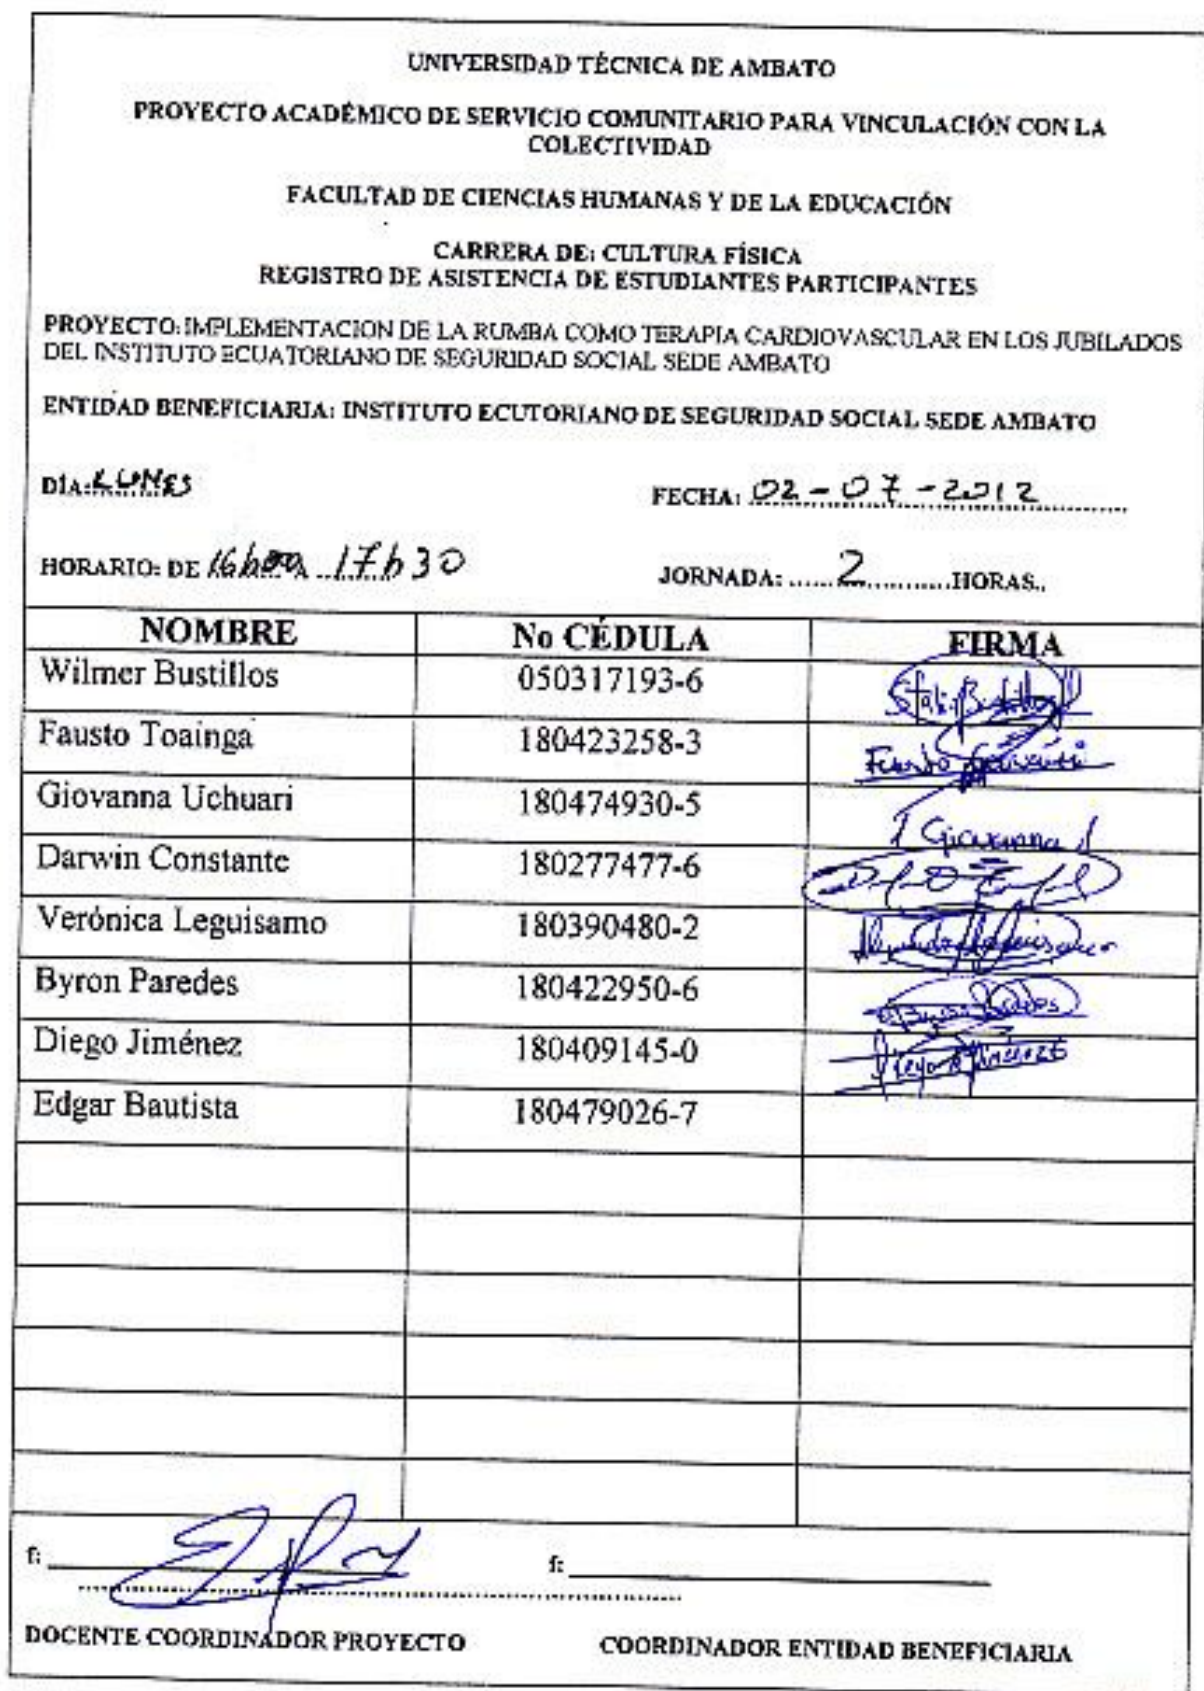 UNIVERSIDAD TÉCNICA DE AMBATO
PROYECTO ACADÉMICO DE SERVICIO COMUNITARIO PARA VINCULACIÓN CON LA
COLECTIVIDAD
FACULTAD DE CIENCIAS HUMANAS Y DE LA EDUCACIÓN
CARRERA DE: CULTURA FÍSICA
REGISTRO DE ASISTENCIA DE ESTUDIANTES PARTICIPANTES
PROYECTO: IMPLEMENTACION DE LA RUMBA COMO TERAPIA CARDIOVASCULAR EN LOS JUBILADOS
DEL INSTITUTO ECUATORIANO DE SEGURIDAD SOCIAL SEDE AMBATO
ENTIDAD BENEFICIARIA: INSTITUTO ECUTORIANO DE SEGURIDAD SOCIAL SEDE AMBATO
DÍA: LUNES FECHA: 02-07-2012
HORARIO: DE 16h00 A 17h30 JORNADA: 2 HORAS..
NOMBRE No CÉDULA FIRMA
Wilmer Bustillos 050317193-6
Fausto Toainga 180423258-3 Fausto
Giovanna Uchuari 180474930-5 Giovanna
Darwin Constante 180277477-6
Verónica Leguisamo 180390480-2
Byron Paredes 180422950-6
Diego Jiménez 180409145-0 Diego Jiménez
Edgar Bautista 180479026-7
f: f:
DOCENTE COORDINADOR PROYECTO COORDINADOR ENTIDAD BENEFICIARIA